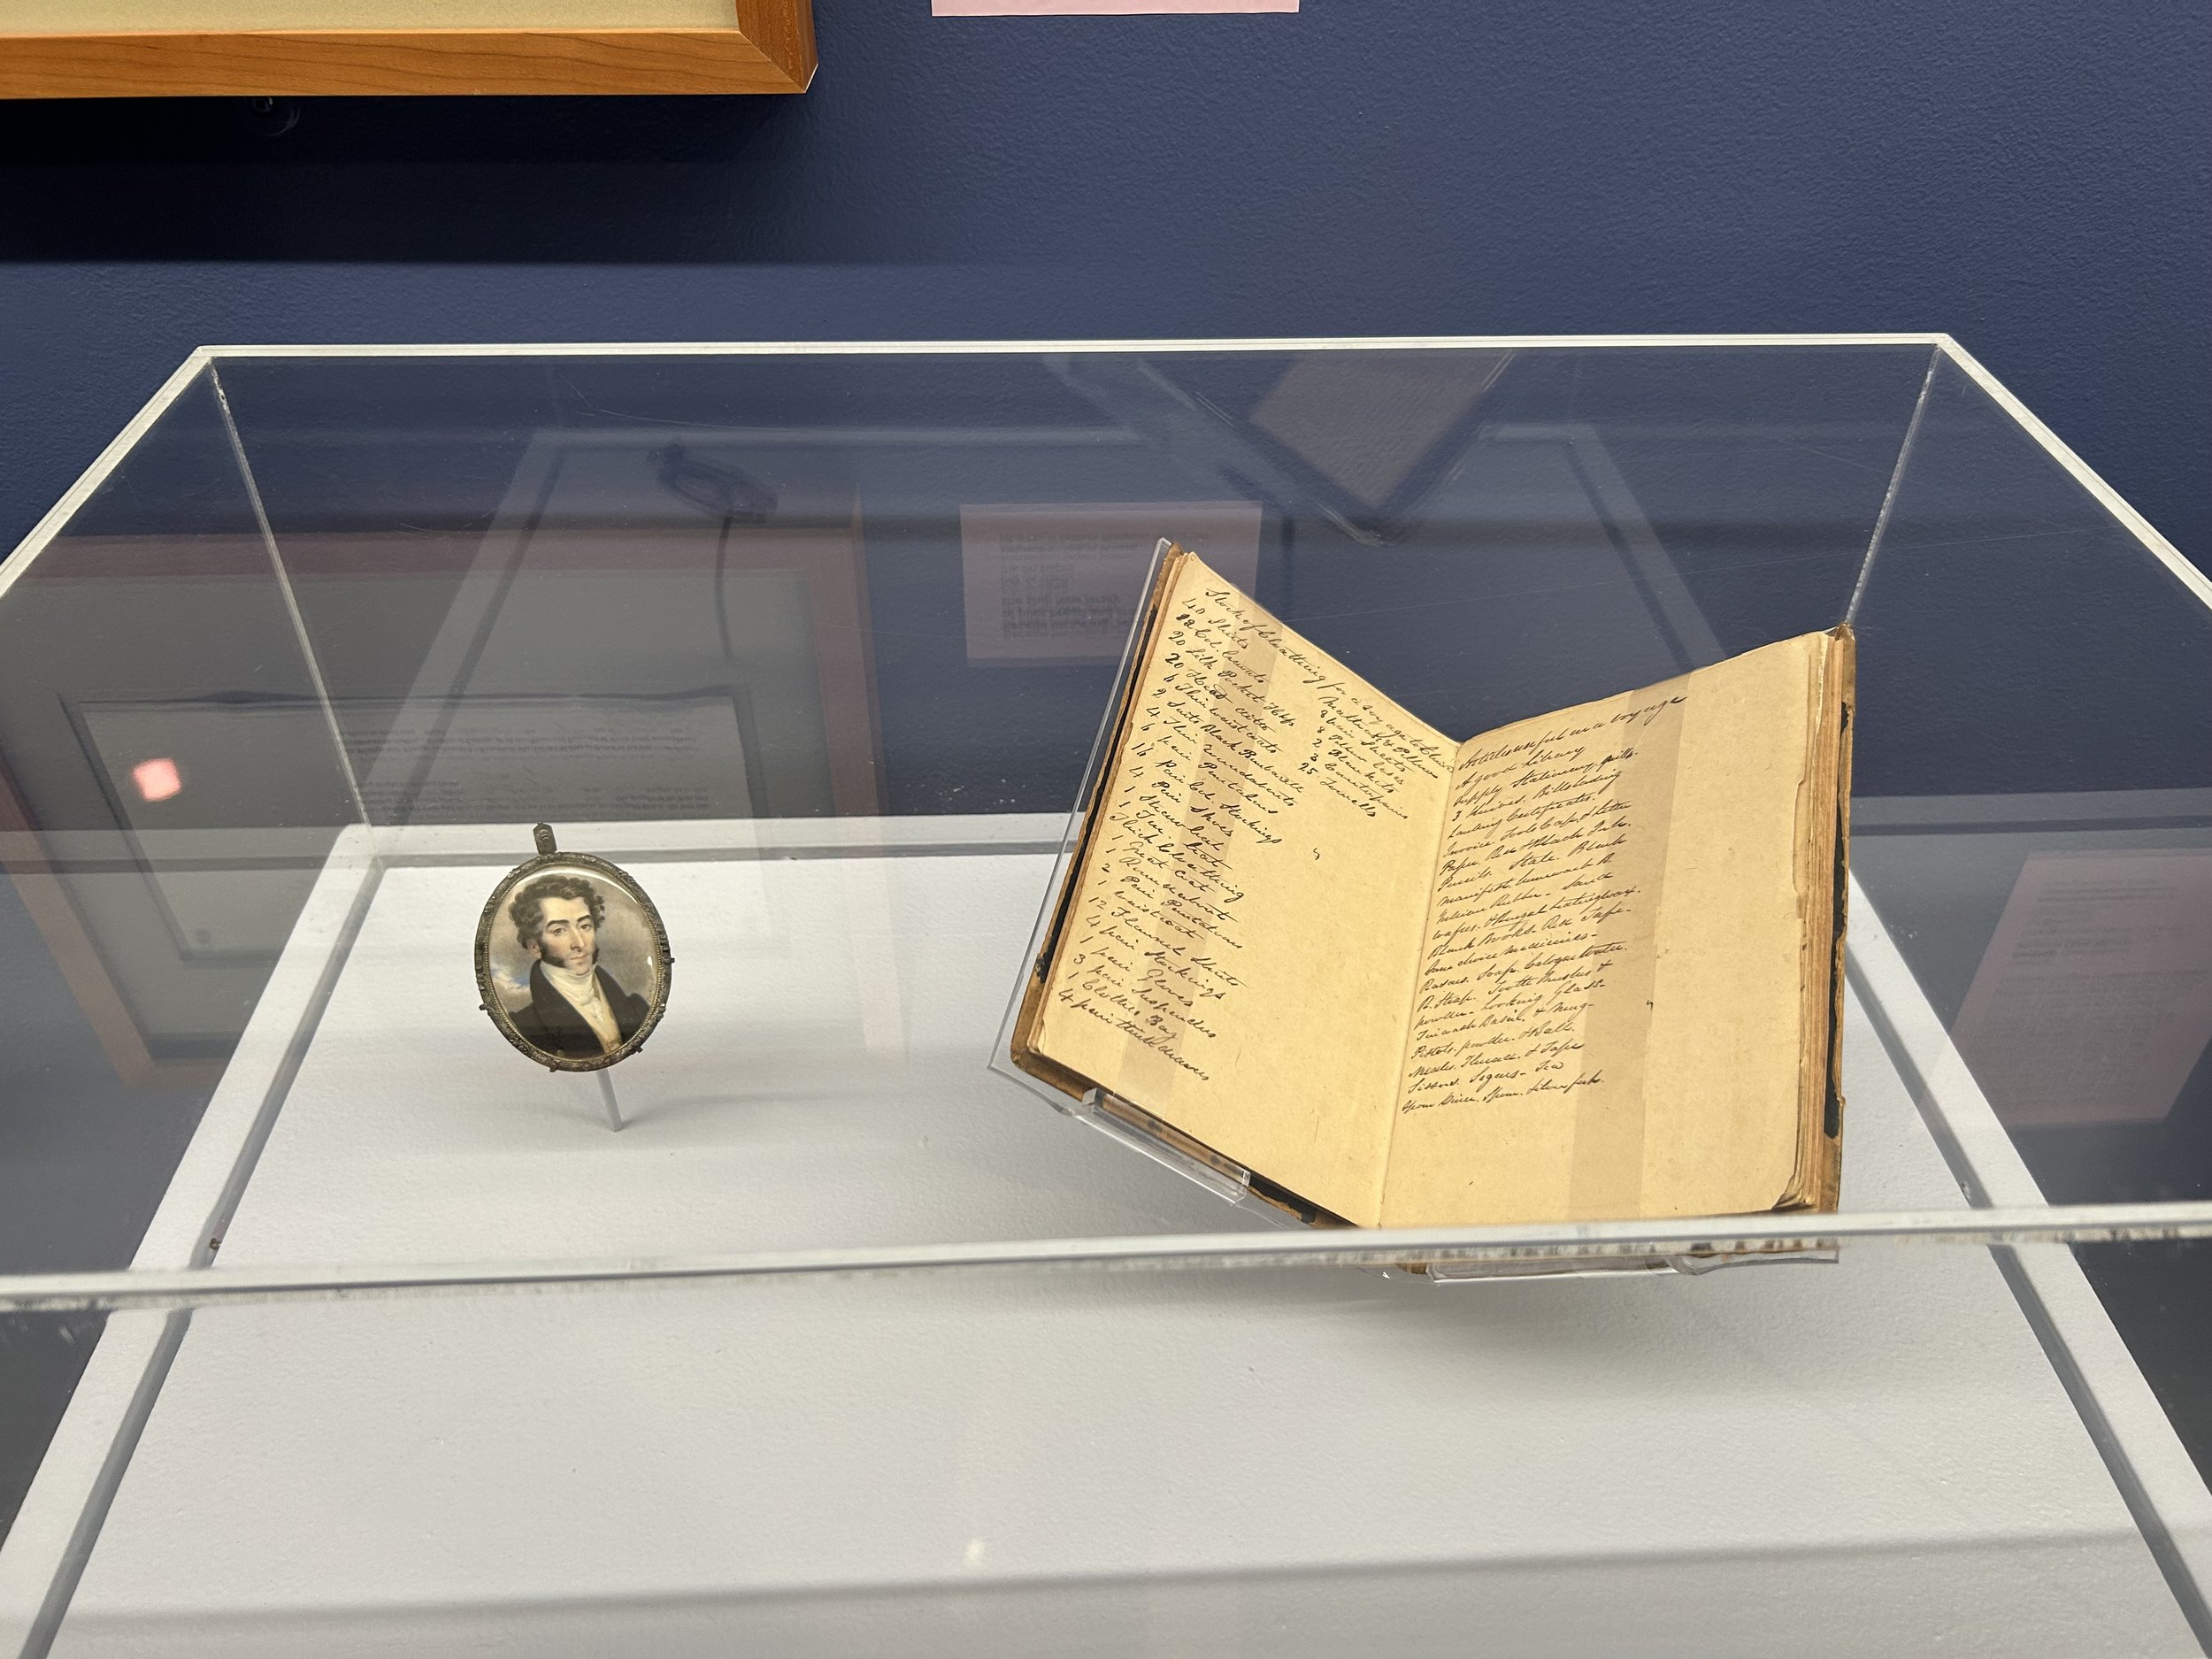 Stock of Cloathing for a voyage to China
40 Shirts
12 Col. Cravats
20 Silk Pocket Hdkfs
20 Neck ditto
6 Thin waistcoats
2 Suits Black Bombazette
4 Thin roundabouts
6 pair Pantaloons
16 Pair Stockings
4 Pair Shoes
1
1 Fur hat
Thick Cloathing
1 Great Coat
1 Roundabout
2 Pair Pantaloons
1 Waistcoat
12 Flannel Shirts
4 pair Stockings
1 pair Gloves
3 pair Suspenders
1 Clothes Bag
4 pair thick drawers
Mattress & Pillows
pair Sheets
Pillow Cases
2 Blankets
3 Counterpanes
25 Towells
Articles useful on a voyage
A good library
Supply Stationery, quills.
3 Knives. Bills lading
Landing Certificates.
Invoice Fools Cap & letter
Paper. Red & black Ink.
Pencils. Slate. Blank
manifest.
Indian Rubber - Sand
Wafers. & Sealingwax.
Blank Books. Red Tape.
Some choice medicines -
Razors. Soap. Cologne water.
R. Strap. Tooth Brushes &
powder - Looking Glass -
Tin wash Basin, & Mug -
Pistols, powder, & Balls.
Needles. Thread. & Tape
Sissors. Segars - Tea
Spoon. Silver fork.